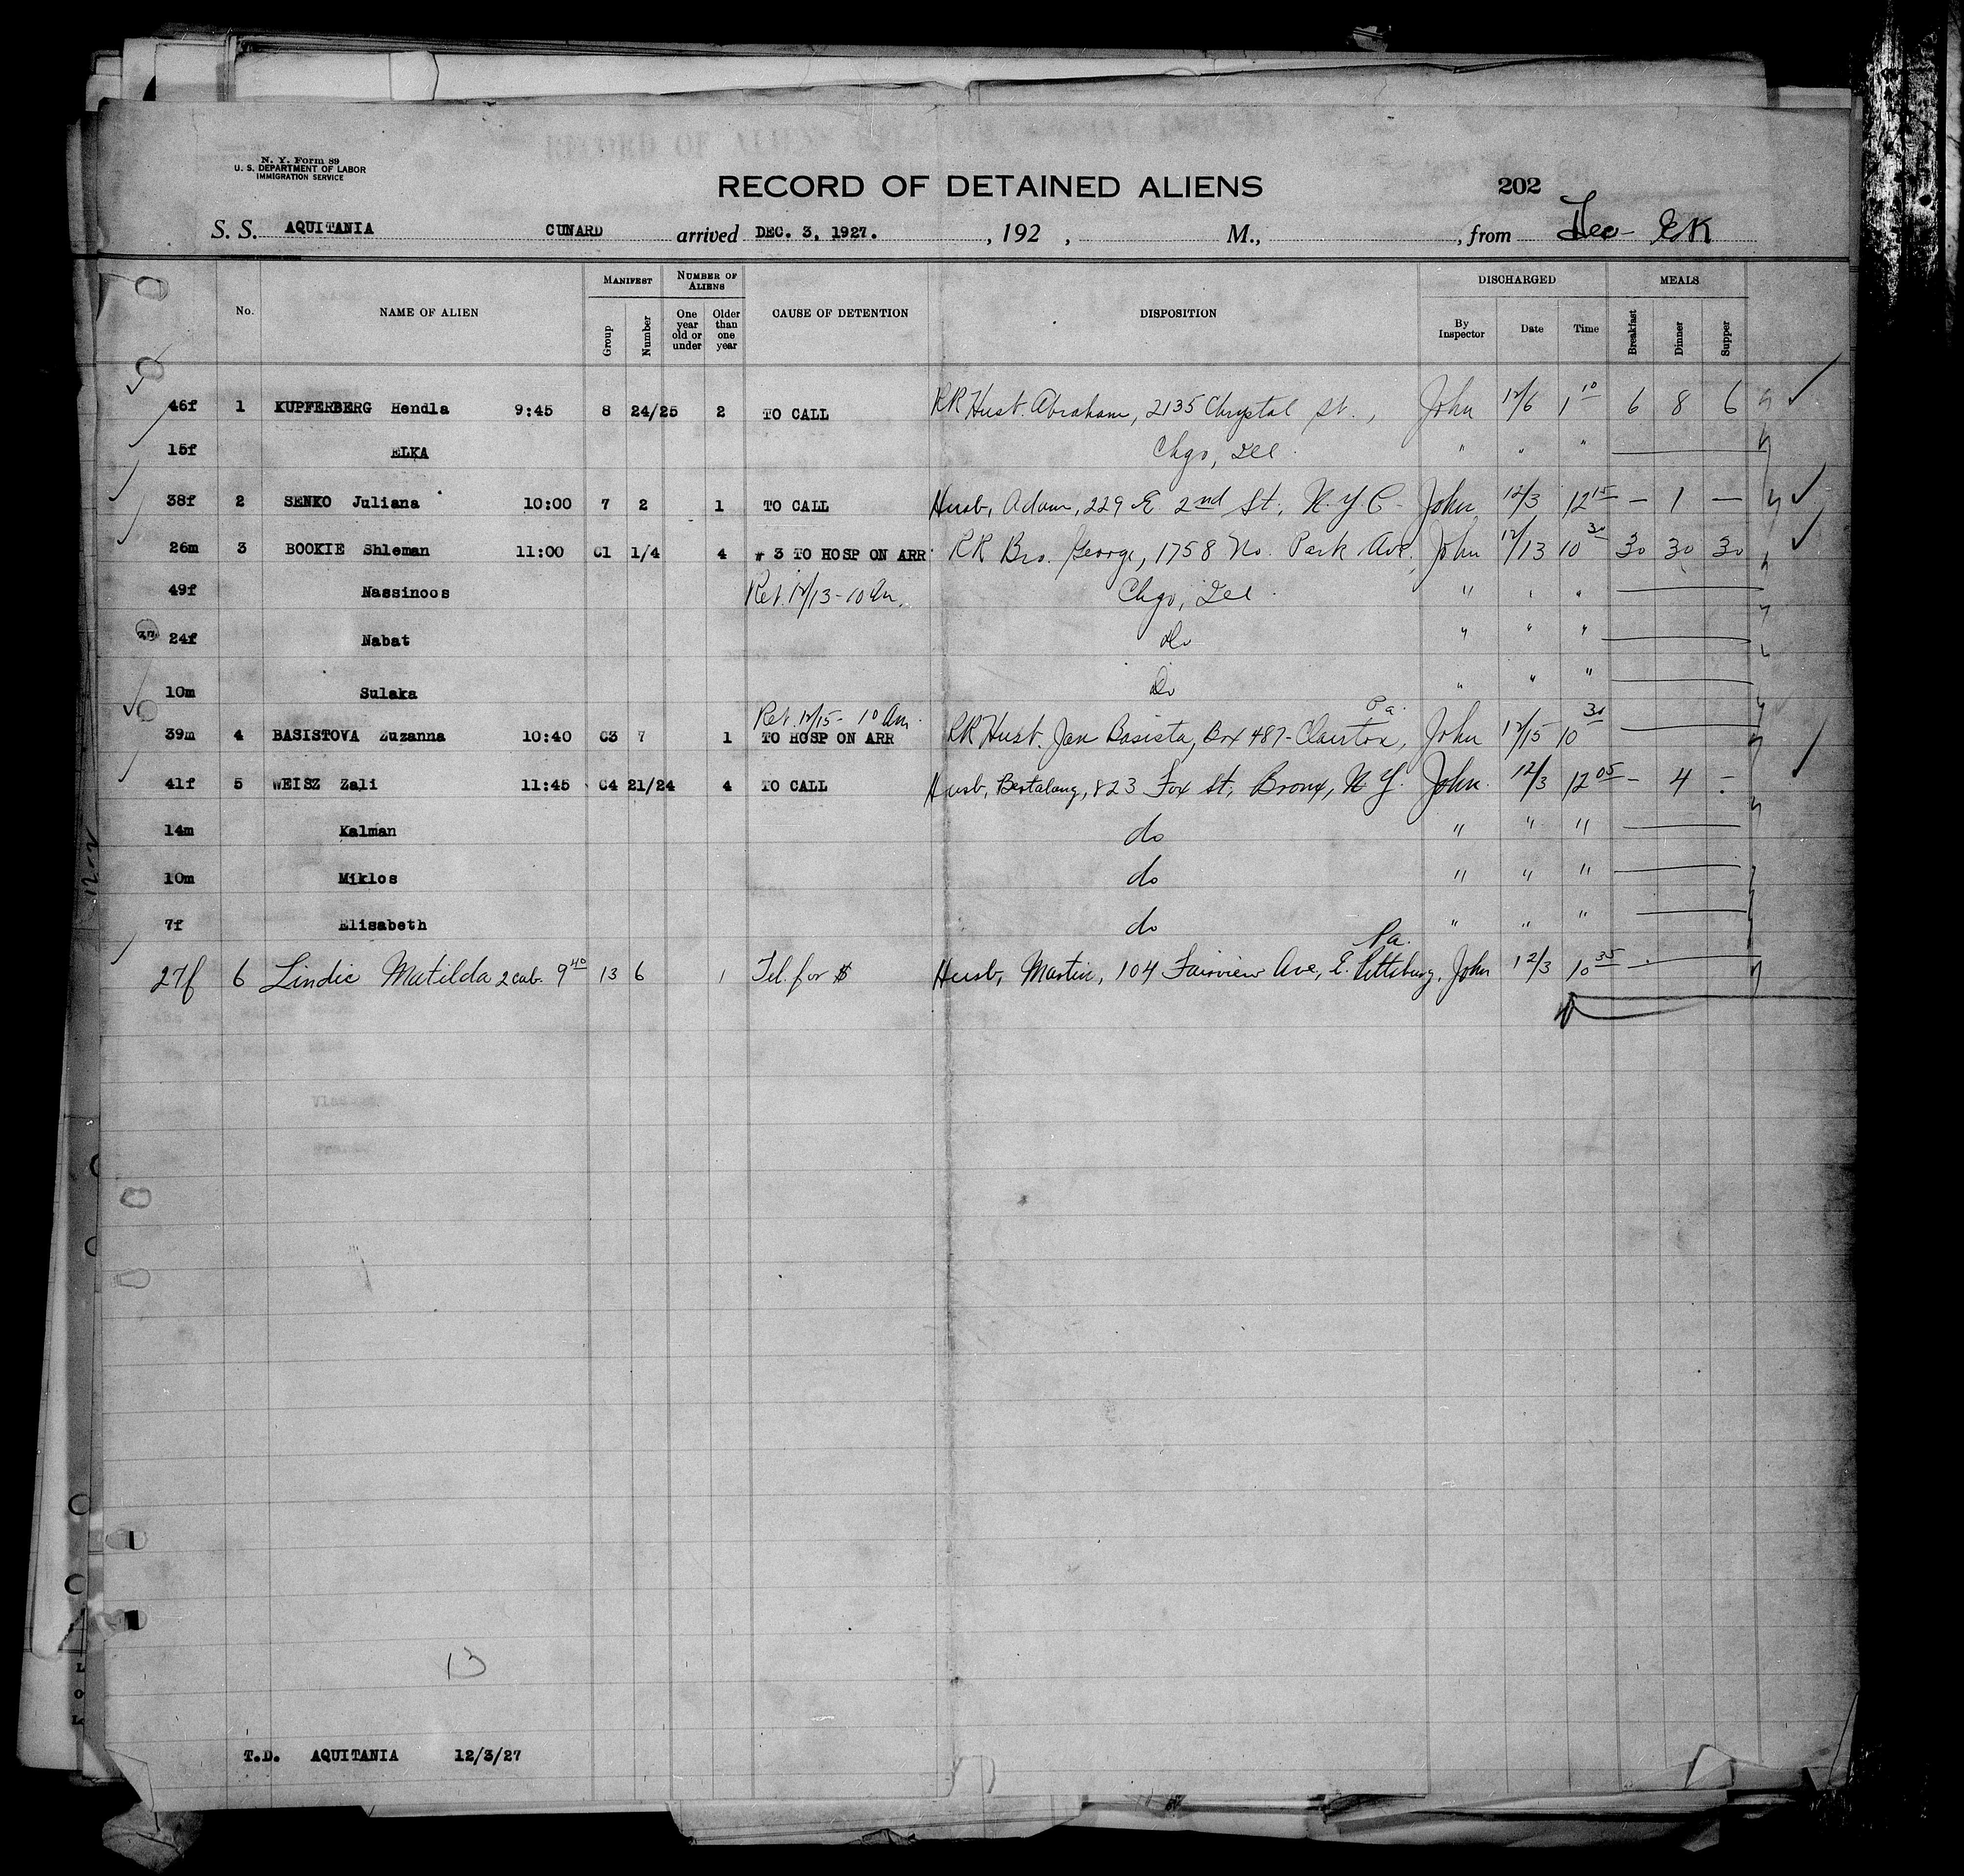 N. Y. Form 89
U. S. DEPARTMENT OF LABOR
IMMIGRATION SERVICE
RECORD OF DETAINED ALIENS 202
S. S. AQUITANIA CUNARD arrived DEC. 3, 1927. , 192 , M., , from
No. NAME OF ALIEN MANIFEST Group Number NUMBER OF ALIENS One year old or under Older than one year CAUSE OF DETENTION DISPOSITION DISCHARGED By Inspector Date Time MEALS Breakfast Dinner Supper
46f 1 KUPFERBERG Hendla 9:45 8 24/25 2 TO CALL RR Husb. Abraham, 2135 Chrystal St., John 12/6 1 10 6 8 6
15f ELKA Chgo, Ill. " " "
38f 2 SENKO Juliana 10:00 7 2 1 TO CALL Husb, Adam, 229 E 2nd St, N.Y.C- John 12/3 12 15 — 1 —
26m 3 BOOKIE Shleman 11:00 C1 1/4 4 # 3 TO HOSP ON ARR RR Bro. George, 1758 No. Park Ave, John 12/13 10 30 30 30 30
49f Nassinoos Ret. 12/13-10 Am. Chgo, Ill. " " "
24f Nabat Do " " "
10m Sulaka Do " " "
Ret. 12/15- 10 Am. Pa.
39m 4 BASISTOVA Zuzanna 10:40 C3 7 1 TO HOSP ON ARR RR Husb. Jan Basista, Box 487- Clairton, John 12/15 10 30
41f 5 WEISZ Zali 11:45 C4 21/24 4 TO CALL Husb, Bertalang, 823 Fox St, Bronx, N.Y. John. 12/3 12 05 — 4 —
14m Kalman do " " "
10m Miklos do " " "
7f Elisabeth do " " "
Pa.
27f 6 Lindic Matilda 2 cab. 9 40 13 6 1 Tel. for $ Husb, Martin, 104 Fairview Ave, E. Pittsburg, John 12/3 10 35
13
T.D. AQUITANIA 12/3/27